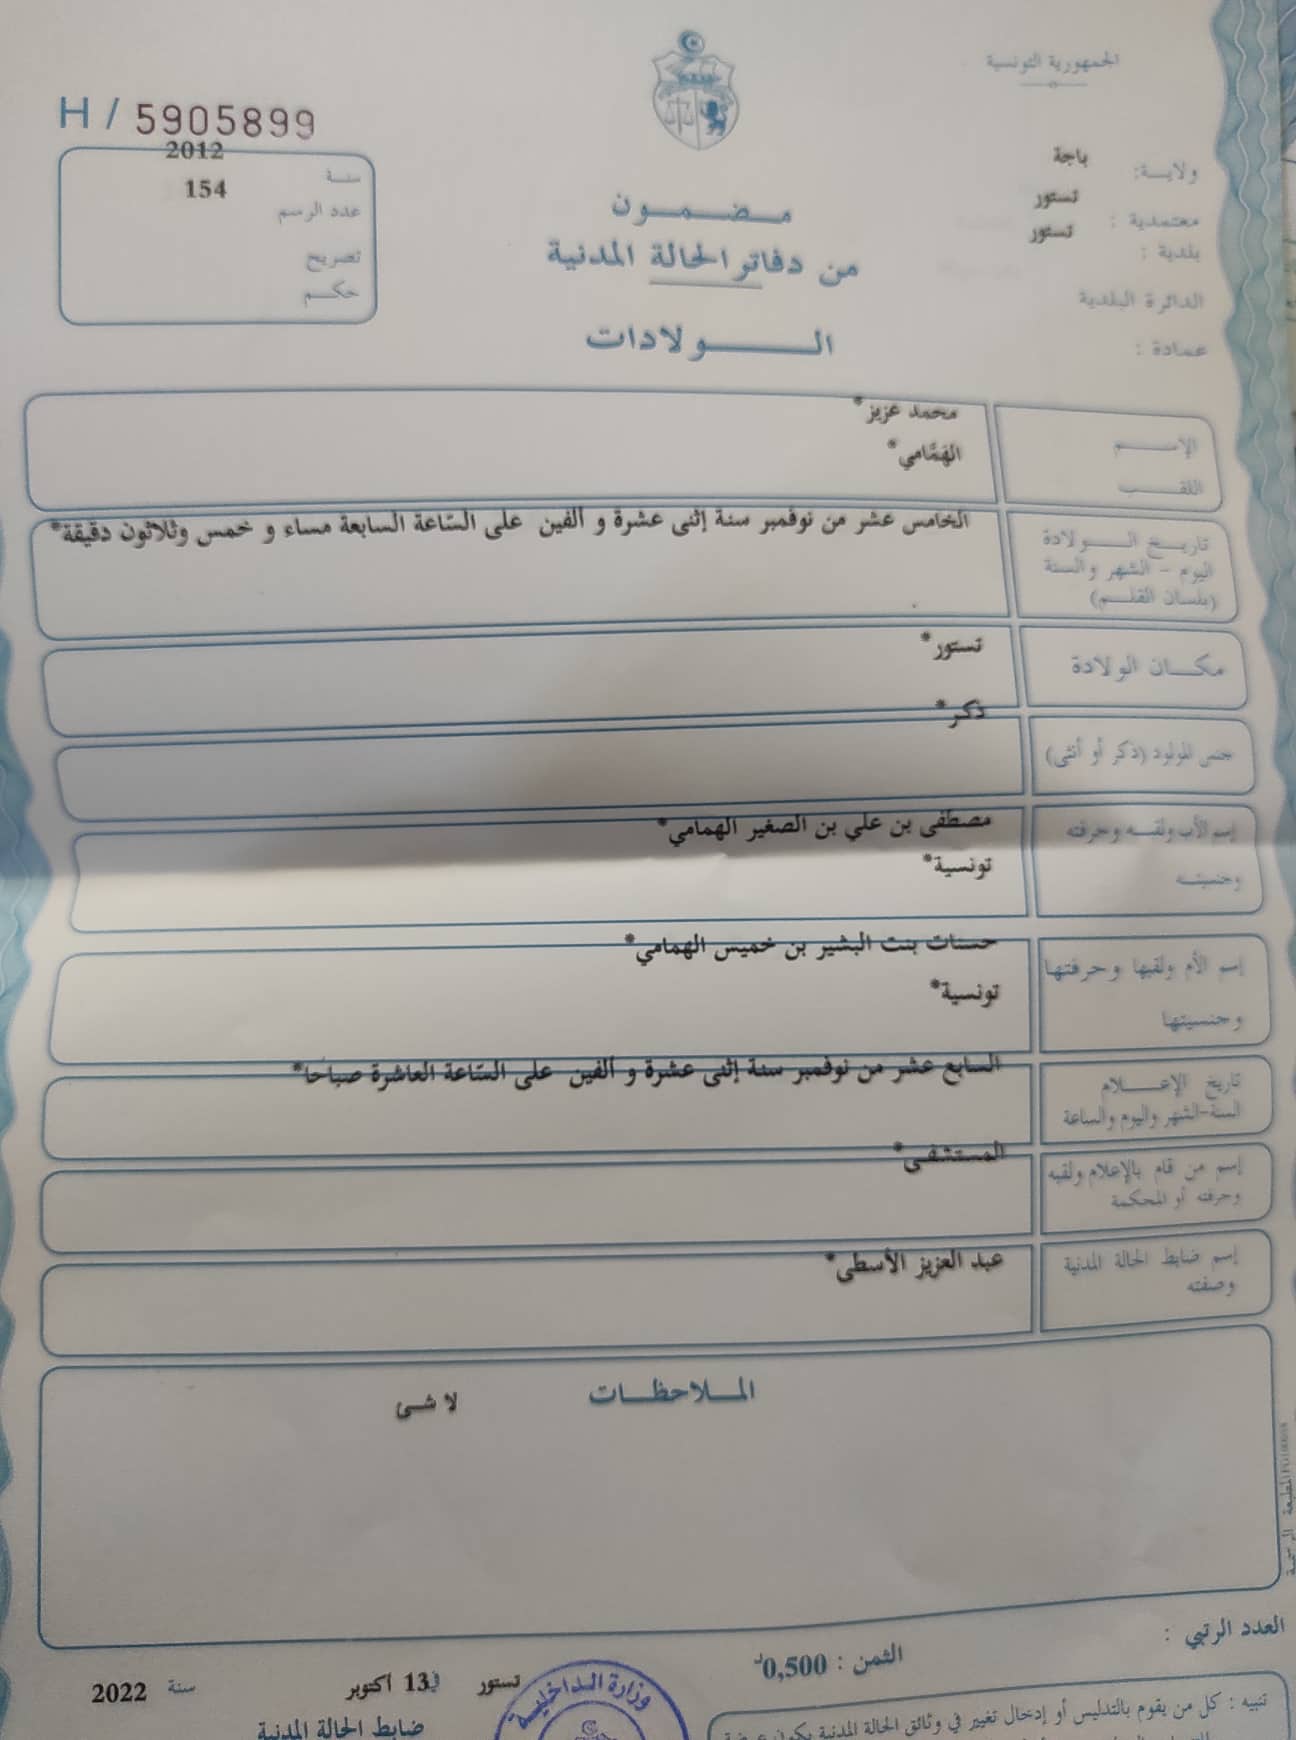 الجمهورية التونسية
H / 5905899
ولايـة: باجة
معتمدية : تستور
بلدية : تستور
الدائرة البلدية
عمادة :
سنـة 2012
عدد الرسم 154
تصريح
حكـم
مـضـمـون
من دفاتر الحالة المدنية
الـولادات
الإسـم محمد عزيز*
اللقـب الهَمَّامي*
تاريـخ الـولادة
اليوم - الشهر والسنة
(بلسان القلـم)
الخامس عشر من نوفمبر سنة إثنى عشرة و ألفين على السّاعة السابعة مساء و خمس وثلاثون دقيقة*
مكـان الولادة تستور*
جنس المولود (ذكر أو أنثى) ذكر*
إسم الأب ولقبـه وحرفته مصطفى بن علي بن الصغير الهمامي*
وجنسيتـه تونسية*
إسم الأم ولقبها وحرفتها حسنات بنت البشير بن خميس الهمامي*
وجنسيتها تونسية*
تاريخ الإعـلام السابع عشر من نوفمبر سنة إثنى عشرة و ألفين على السّاعة العاشرة صباحا*
السنة-الشهر واليوم والساعة
إسم من قام بالإعلام ولقبه المستشفى*
وحرفته أو المحكمة
إسم ضابط الحالة المدنية عبد العزيز الأسطى*
وصفته
المـلاحظـات
لا شئ
العدد الرتبي :
الثمن : 0,500د
تستور في 13 أكتوبر سنة 2022
ضابط الحالة المدنية
وزارة الـداخليـة
تنبيه : كل من يقوم بالتدليس أو إدخال تغيير في وثائق الحالة المدنية يكون عرضة